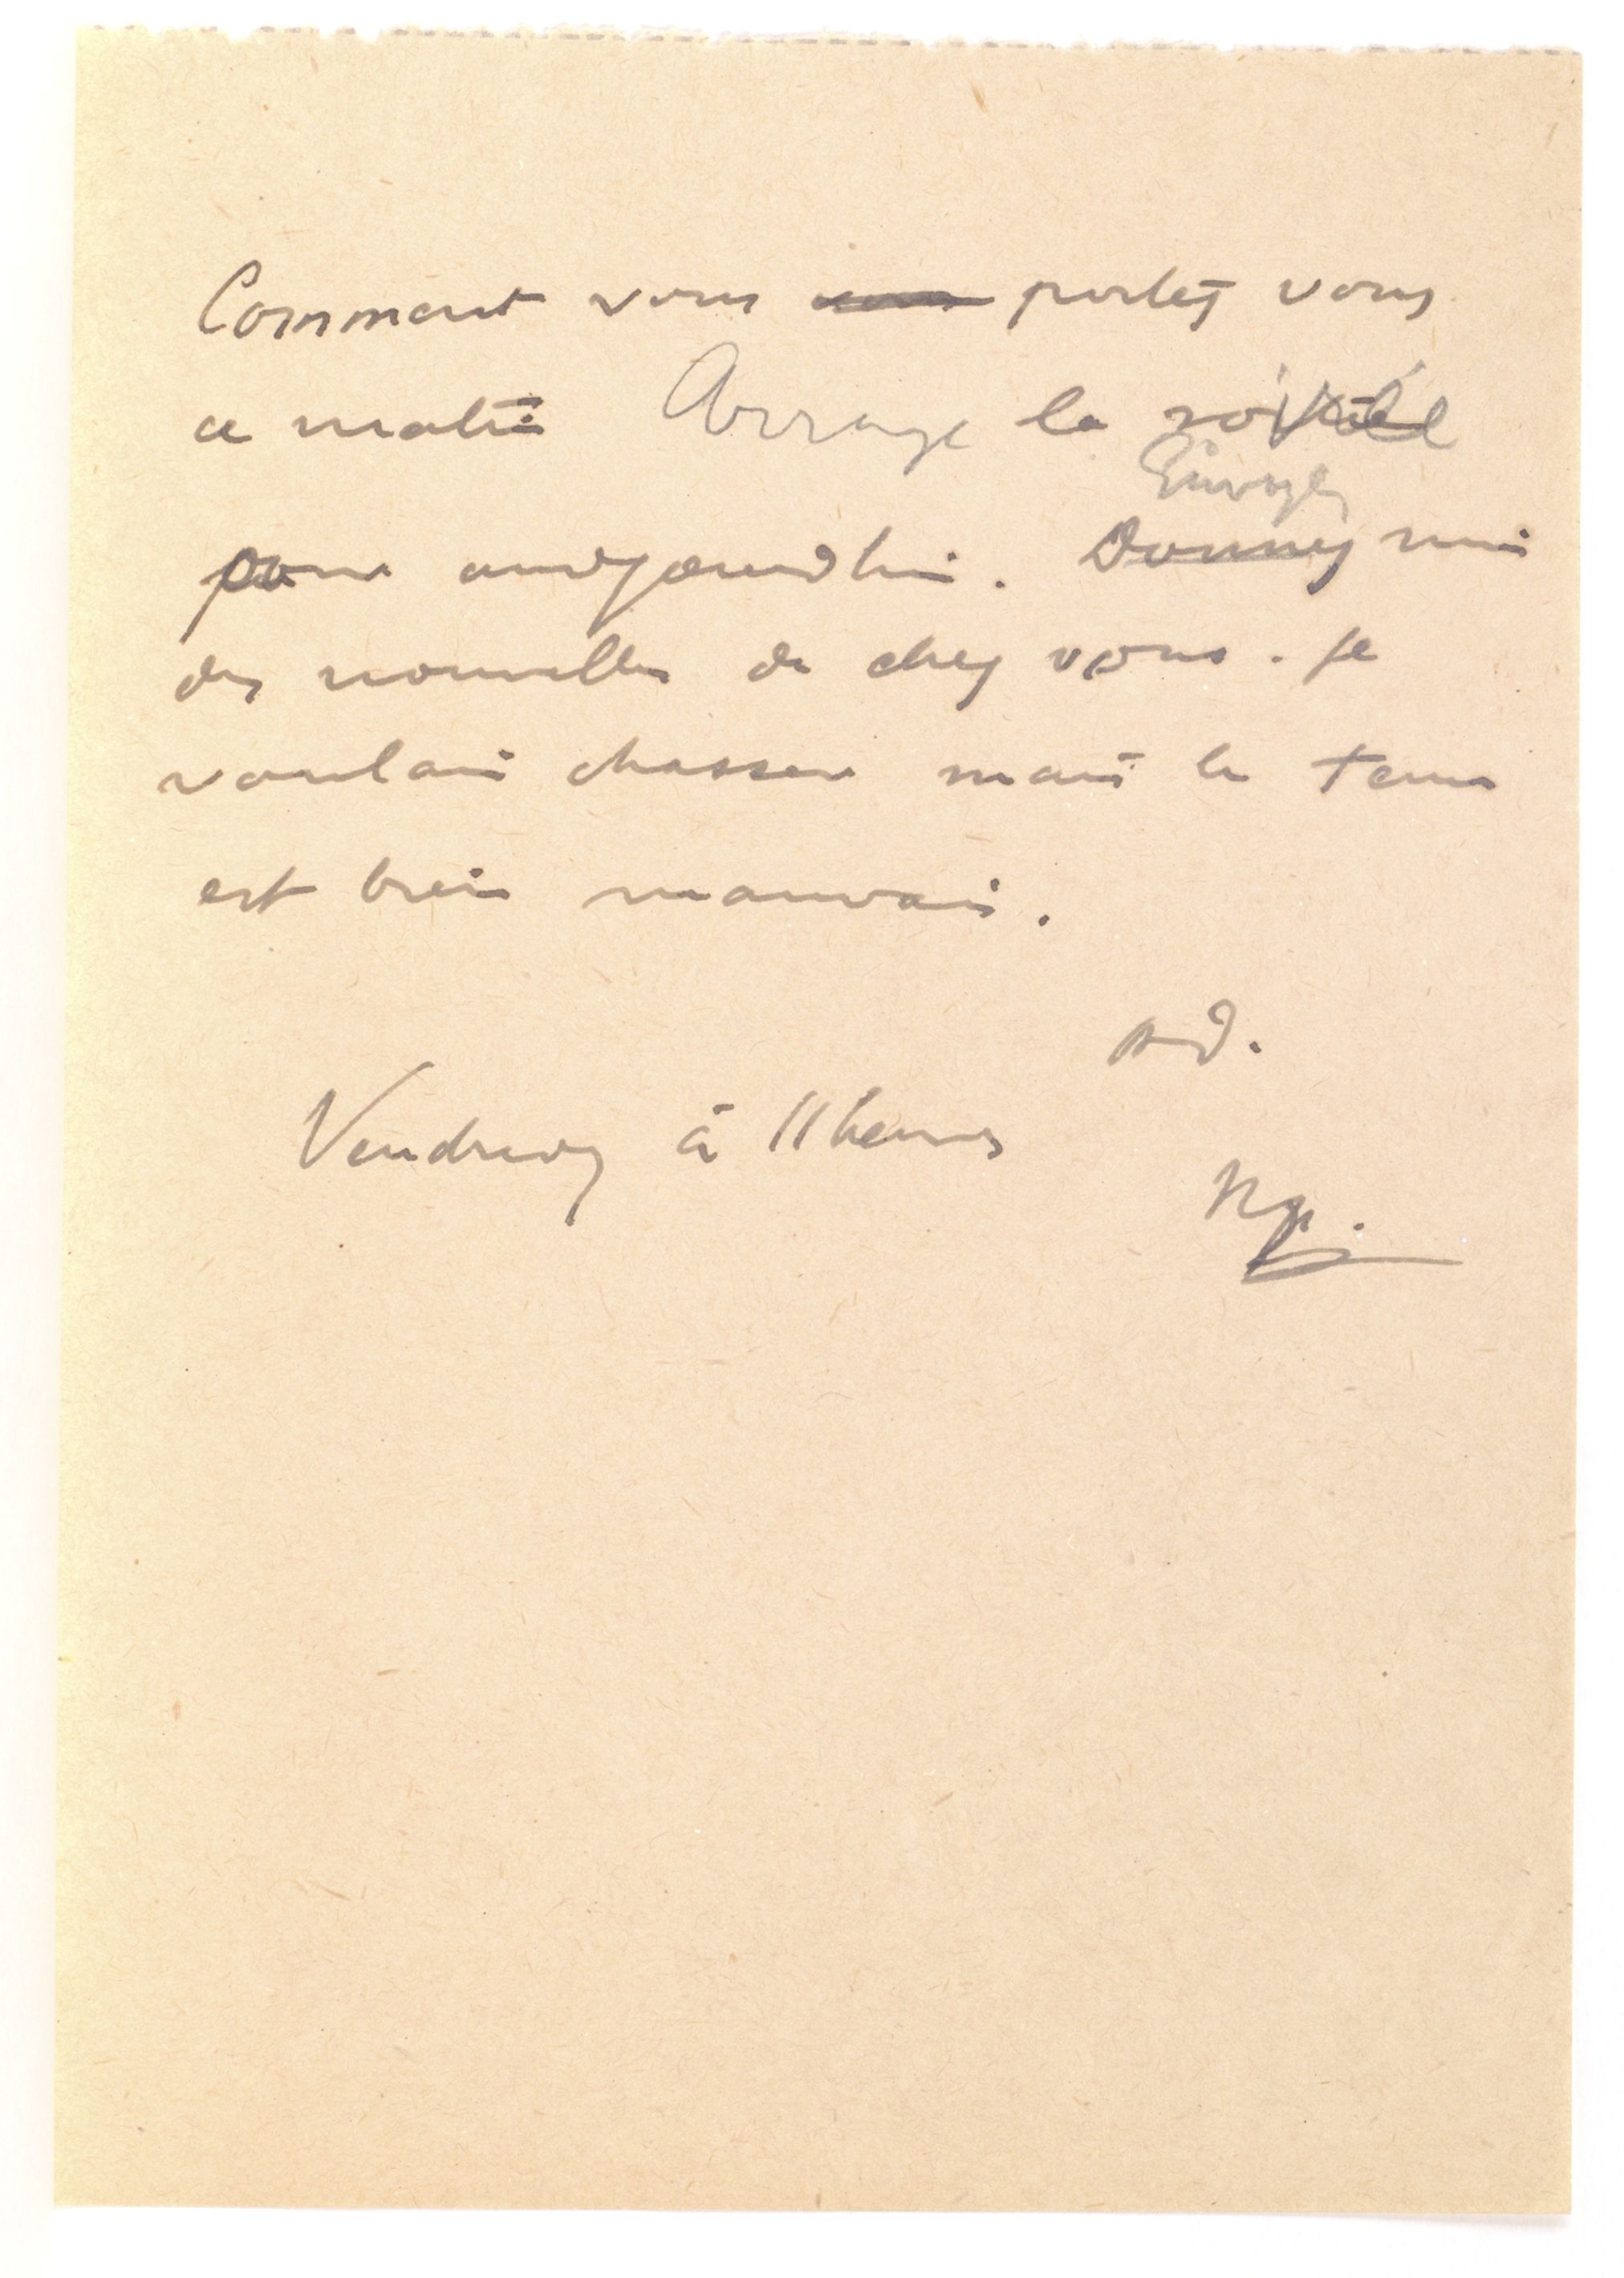 Comment vous portez vous
ce matin Arrange la
Envoyez
pour audjourd'hui. Donnez moi
des nouvelles de chez vous. Je
voulais chasser mais le tems
est bien mauvais.
Vendredy à 11 heures